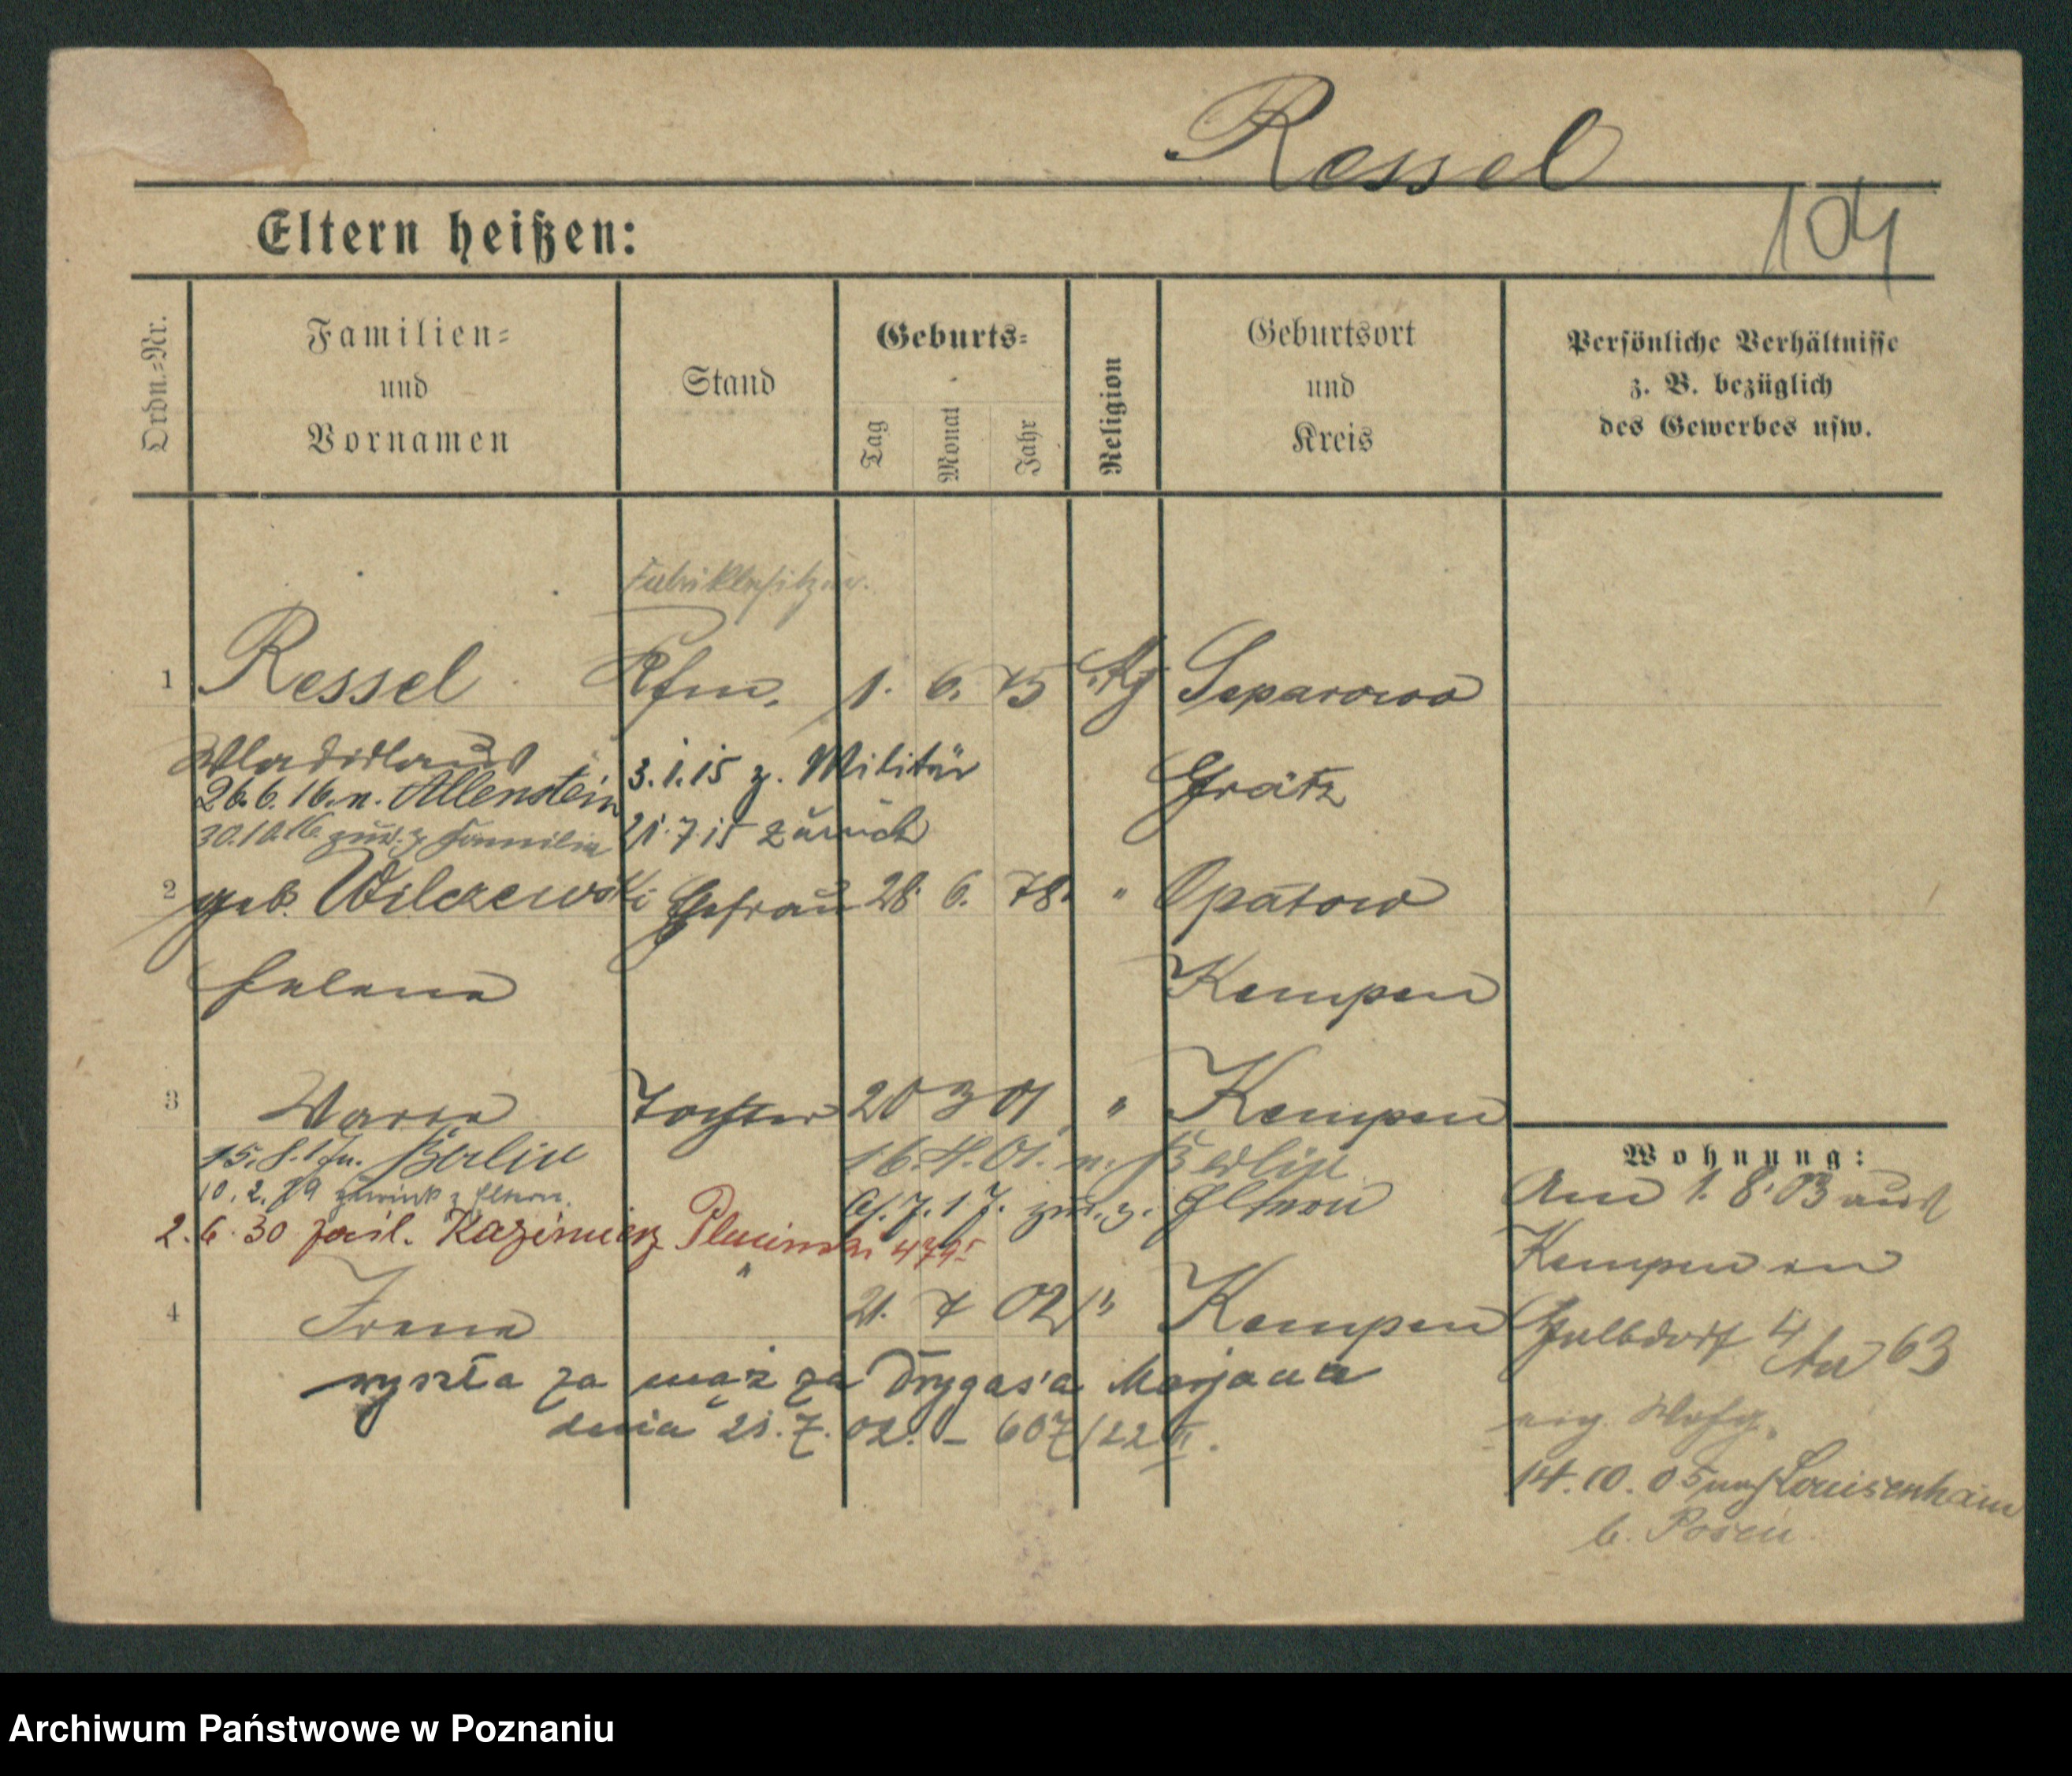 Ressel
104
Eltern heißen:
Ordn.-Nr.
Familien-
und
Vornamen
Stand
Geburts-
Tag
Monat
Jahr
Religion
Geburtsort
und
Kreis
Persönliche Verhältnisse
z. B. bezüglich
des Gewerbes usw.
Fabrikbesitzer.
1 Ressel Kfm. 1. 6. 75 Separowo
Wladislaus 3.1.15 z. Militär Grätz
26.6.16. n. Allenstein
30.10.16 zur. z. Familie 21.7.15 zurück
2 geb. Wilczewski Ehefrau 28. 6. 78. " Opatow
Helene Kempen
3 Maria Tochter 20 3 01 " Kempen
15.8.17 n. Berlin 16.4.01. n. Berlin
10.2.19 zurück z. Eltern. 7.17. zur. z. Eltern
2.6.30 zaśl. Kazimierz Plucinski
4 Irena " 21. 7 02 " Kempen
wyszła za mąż za Drygas'a Marjana
dnia 21.7.02. – 607/22 II.
Wohnung:
Am 1.8.03 aus
Kempen in
Halbdorf 4
63
eig. Wohg.
14.10.05 nach Louisenhain
b. Posen
Archiwum Państwowe w Poznaniu